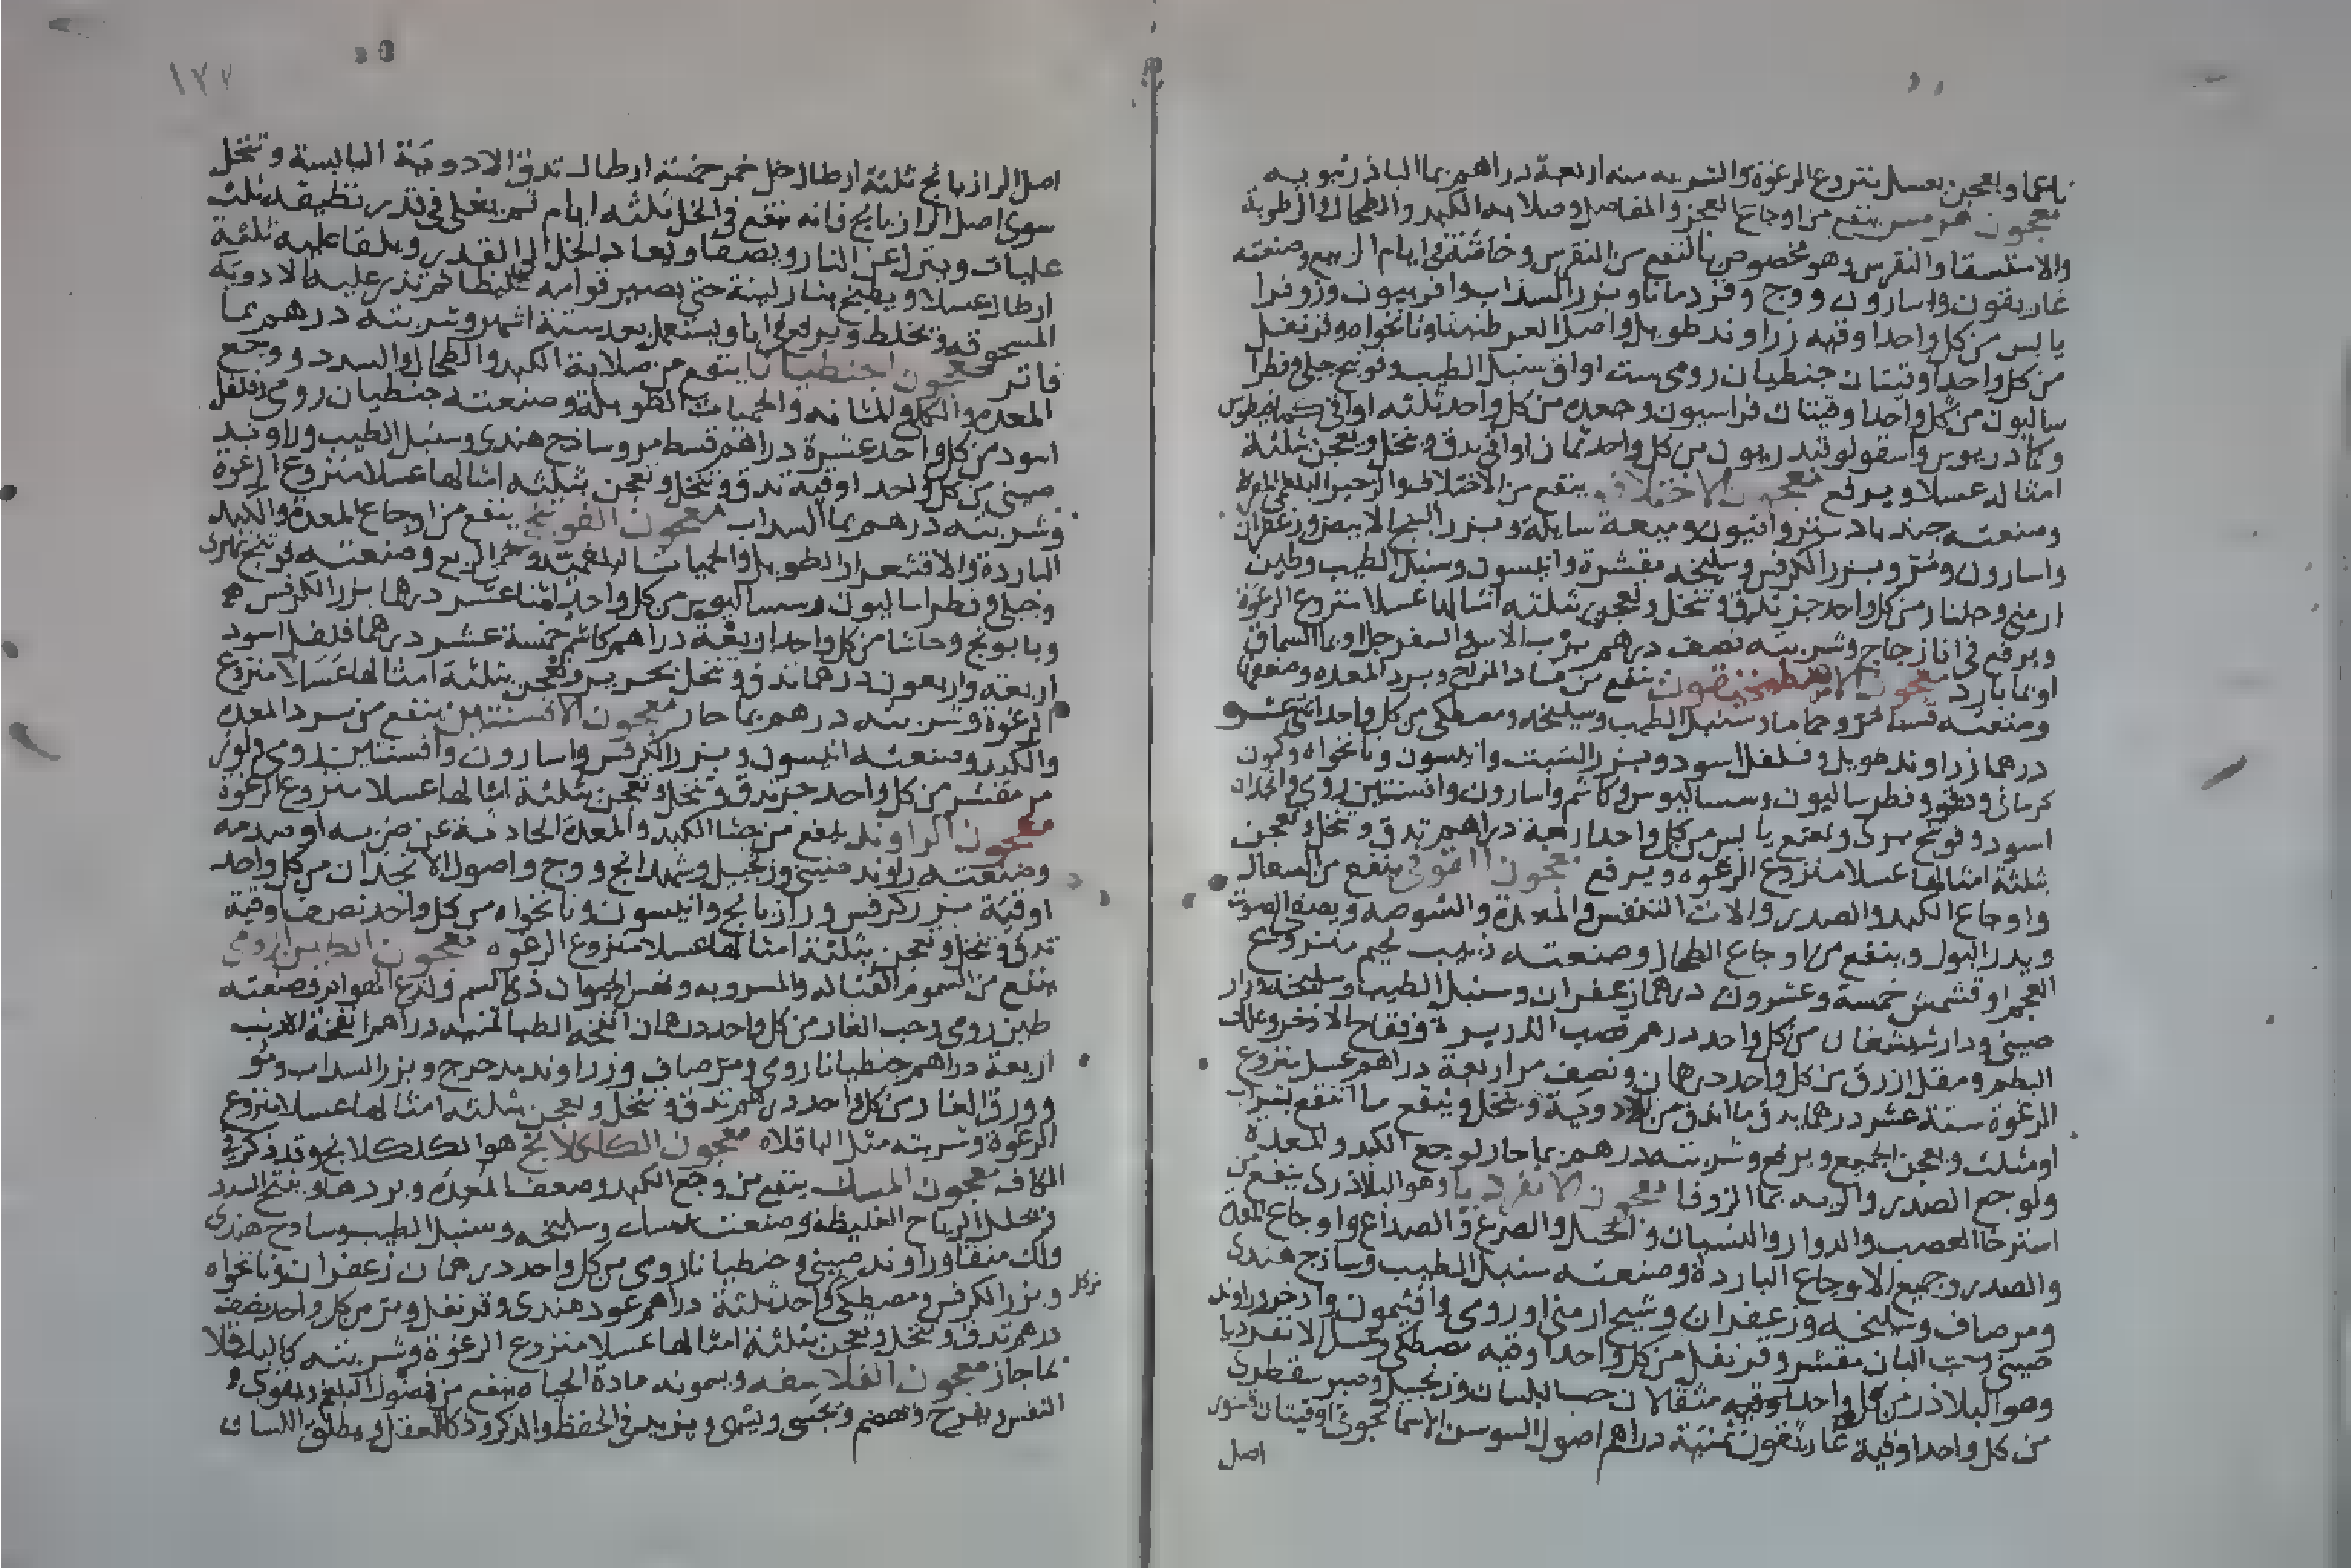 ناعما ويعجن بعسل منزوع الرغوة والشربه منه اربعة دراهم بما الباذرنبويه
معجون هرمس ينفع من اوجاع العجز والمفاصل وصلابه الكبد والطحال والرطوبة
والاستسقا والنقرس وهو مخصوص بالنفع من النقرس وخاصة في ايام الربيع وصنعته
غاريقون واسارون ووج وقردمانا وبزر السذاب وافربيون وزوفرا
يابس من كل واحد اوقيه زراوند طويل واصل العرطنيثا ونانخواه وقرنفل
من كل واحد اوقيتان جنطيان رومي ست اواق سنبل الطيب وفوتنج جبلي وفطرا
ساليون من كل واحد اوقيتان فراسيون وجعده من كل واحد ثلثه اواق كمافيطوس
وكمادريوس واسقولوقندريون من كل واحد ثمان اواقي يدق وينخل ويعجن بثلثة
امثاله عسلا ويرفع معجون الاختلاف ينفع من الاختلاف والزحير البلغمي
وصنعته جندبادستر وافيون وميعة سايلة وبزر البنج الابيض وزعفران
واسارون ومر وبزر الكرفس وسليخه مقشرة وانيسون وسنبل الطيب وطين
ارمني وجلنار من كل واحد جز تدق وتنخل وتعجن بثلثه امثالها عسلا منزوع الرغوة
ويرفع في انا زجاج وشربته نصف درهم برب الاس والسفرجل او بما السماق
او بما بارد معجون ينفع من فساد المزاج وبرد المعده وضعفها
وصنعته قسط مر وحماما وسنبل الطيب وسليخه ومصطكى من كل واحد اثنى عشر
درهما زراوند طويل وفلفل اسود وبزر الشبت وانيسون ونانخواه وكمون
كرماني ودوقو وفطرساليون وسساليوس وكاشم واسارون وافسنتين رومي وانجدان
اسود وفوتنج نهري ونعنع يابس من كل واحد اربعة دراهم تدق وتنخل وتعجن
بثلثة امثالها عسلا منزوع الرغوه ويرفع معجون القوفي ينفع من السعال
واوجاع الكبد والصدر والات التنفس والمعدة والشوصه ويصفى الصوت
ويدر البول وينفع من اوجاع الطحال وصنعته زبيب لحيم منزوع
العجم او قشمش خمسة وعشرون درهما زعفران وسنبل الطيب وسليخه ودار
صيني ودارشيشغان من كل واحد درهم قصب الذريرة وفقاح الاذخر وعلك
البطم ومقل ازرق من كل واحد درهمان ونصف مر اربعة دراهم عسل منزوع
الرغوة ستة عشر درهما يدق ما اندق من الادوية وينخل وينقع ما انتقع بشراب
او مثلث ويعجن الجميع ويرفع وشربته درهم بما حار لوجع الكبد والمعدة
ولوجع الصدر والريه بما الزوفا معجون الانقرديا وهو البلاذري ينفع من
استرخا العصب والدوار والنسيان والخبل والصرع والصداع واوجاع المعدة
والصدر وجميع الاوجاع الباردة وصنعته سنبل الطيب وساذج هندي
ومر صاف وسليخه وزعفران وشيح ارمني او رومي وافتيمون واذخر وراوند
صيني وحب البان مقشر وقرنفل من كل واحد اوقيه مصطكى وعسل الانقرديا
وهو البلاذر من كل واحد اوقيه مثقالان حب البلسان وزنجبيل وصبر سقطري
من كل واحد اوقية غاريقون ثمنية دراهم اصول السوسن الاسمانجوني اوقيتان قشور
اصل
١٢٧
اصل الرازيانج ثلثة ارطال خل خمر خمسة ارطال تدق الادوية اليابسة وتنخل
سوى اصل الرازيانج فانه ينقع في الخل ثلثه ايام ثم يغلى في قدر نظيفه ثلث
غليات وينزل عن النار ويصفا ويعاد الخل الى القدر ويلقا عليه ثلثة
ارطال عسلا ويطبخ بنار لينة حتى يصير قوامه غليظا ثم تذر عليه الادوية
المسحوقه وتخلط ويرفع في انا ويستعمل بعد ستة اشهر وشربته درهم بما
فاتر معجون اجنطيانا ينفع من صلابة الكبد والطحال والسدد ووجع
المعده والكلى والمثانه والحميات الطويلة وصنعته جنطيان رومي وفلفل
اسود من كل واحد عشرة دراهم قسط مر وساذج هندي وسنبل الطيب وراوند
صيني من كل واحد اوقية تدق وتنخل وتعجن بثلثه امثالها عسلا منزوع الرغوة
وشربته درهم بما السداب معجون الفوتنج ينفع من اوجاع المعدة والكبد
الباردة والاقشعرار الطويل والحميات البلغمية وحمى الربع وصنعته فوتنج نهري
وجبلي وفطراساليون وسساليوس من كل واحد اثنا عشر درهما بزر الكرفس
وبابونج وحاشا من كل واحد اربعة دراهم كاشم خمسة عشر درهما فلفل اسود
اربعة واربعون درهما تدق وتنخل بحرير وتعجن بثلثة امثالها عسلا منزوع
الرغوة وشربته درهم بما حار معجون الافسنتين ينفع من برد المعده
والكبد وصنعته انيسون وبزر الكرفس واسارون وافسنتين رومي ولوز
مر مقشر من كل واحد جز تدق وتنخل وتعجن بثلثة امثالها عسلا منزوع الرغوة
معجون الراوند ينفع من الكبد والمعدة الحادثة عن ضربه او صدمه
وصنعته راوند صيني وزنجبيل وشهدانج ووج واصول الانجدان من كل واحد
اوقية بزر كرفس ورازيانج وانيسون ونانخواه من كل واحد نصف اوقية
تدق وتنخل وتعجن بثلثة امثالها عسلا منزوع الرغوه معجون الطين الرومي
ينفع من السموم القتاله والمشروبه ونهش الحيوان ذي السم ولدغ الهوام وصنعته
طين رومي وحب الغار من كل واحد درهمان انفحه الظبا ثمنيه دراهم انفحة الارنب
اربعة دراهم جنطيانا رومي ومر صاف وزراوند مدحرج وبزر السداب ومو
وورق الغار من كل واحد درهم تدق وتنخل وتعجن بثلثه امثالها عسلا منزوع
الرغوة وشربته مثل الباقلاه معجون الكلكلانج هو الكلكلانج وقد ذكر في
الكاف معجون المسك ينفع من وجع الكبد وضعف المعدة وبردها ويفتح السدد
ويحلل الرياح الغليظة وصنعته وسليخه وسنبل الطيب وساذج هندي
ولك منقا وراوند صيني وجنطيانا رومي من كل واحد درهمان زعفران ونانخواه
وبزر الكرفس ومصطكى من كل واحد ثلثة دراهم عود هندي وقرنفل ومر من كل واحد نصف
درهم تدق وتنخل وتعجن بثلثة امثالها عسلا منزوع الرغوة وشربته كالباقلا
بما حار معجون الفلاسفه ويسمونه مادة الحياه ينفع من فضول البلغم ويقوي
النفس ويفرح ويهضم ويجشي ويشهي ويزيد في الحفظ والذكر وذكا العقل ويطلق اللسان